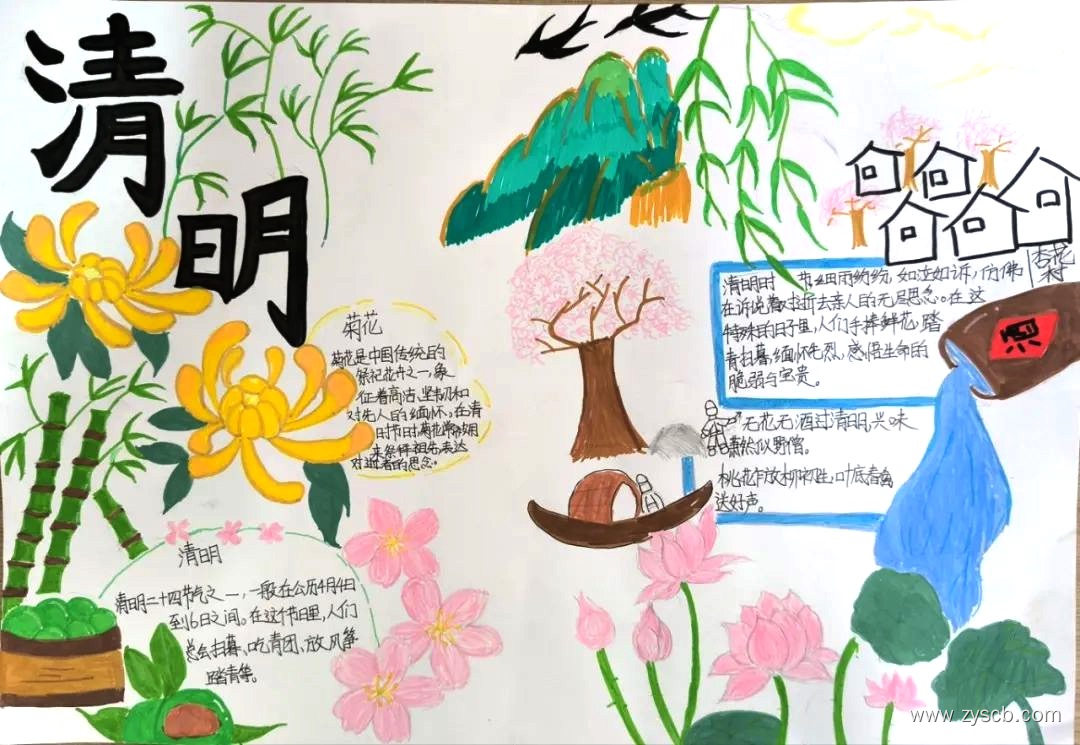 清
明
菊花
菊花是中国传统的
祭祀花卉之一,象
征着高洁、坚韧和
对先人的缅怀。在清
明时节时菊花常被用
来祭拜祖先表达
对逝者的思念。
清明
清明二十四节气之一,一般在公历4月4日
到6日之间。在这个节日里,人们
总会扫墓、吃青团、放风筝
踏青等。
杏花
村
清明时 节细雨纷纷,如泣如诉,仿佛
在诉说着对逝去亲人的无尽思念。在这
特殊的日子里,人们手捧鲜花,踏
青扫墓,缅怀先烈,感悟生命的
脆弱与宝贵。
无花无酒过清明,兴味
萧然似野僧。
桃花作放柳初胜,叶底春禽
送好声。
www.zyscb.com